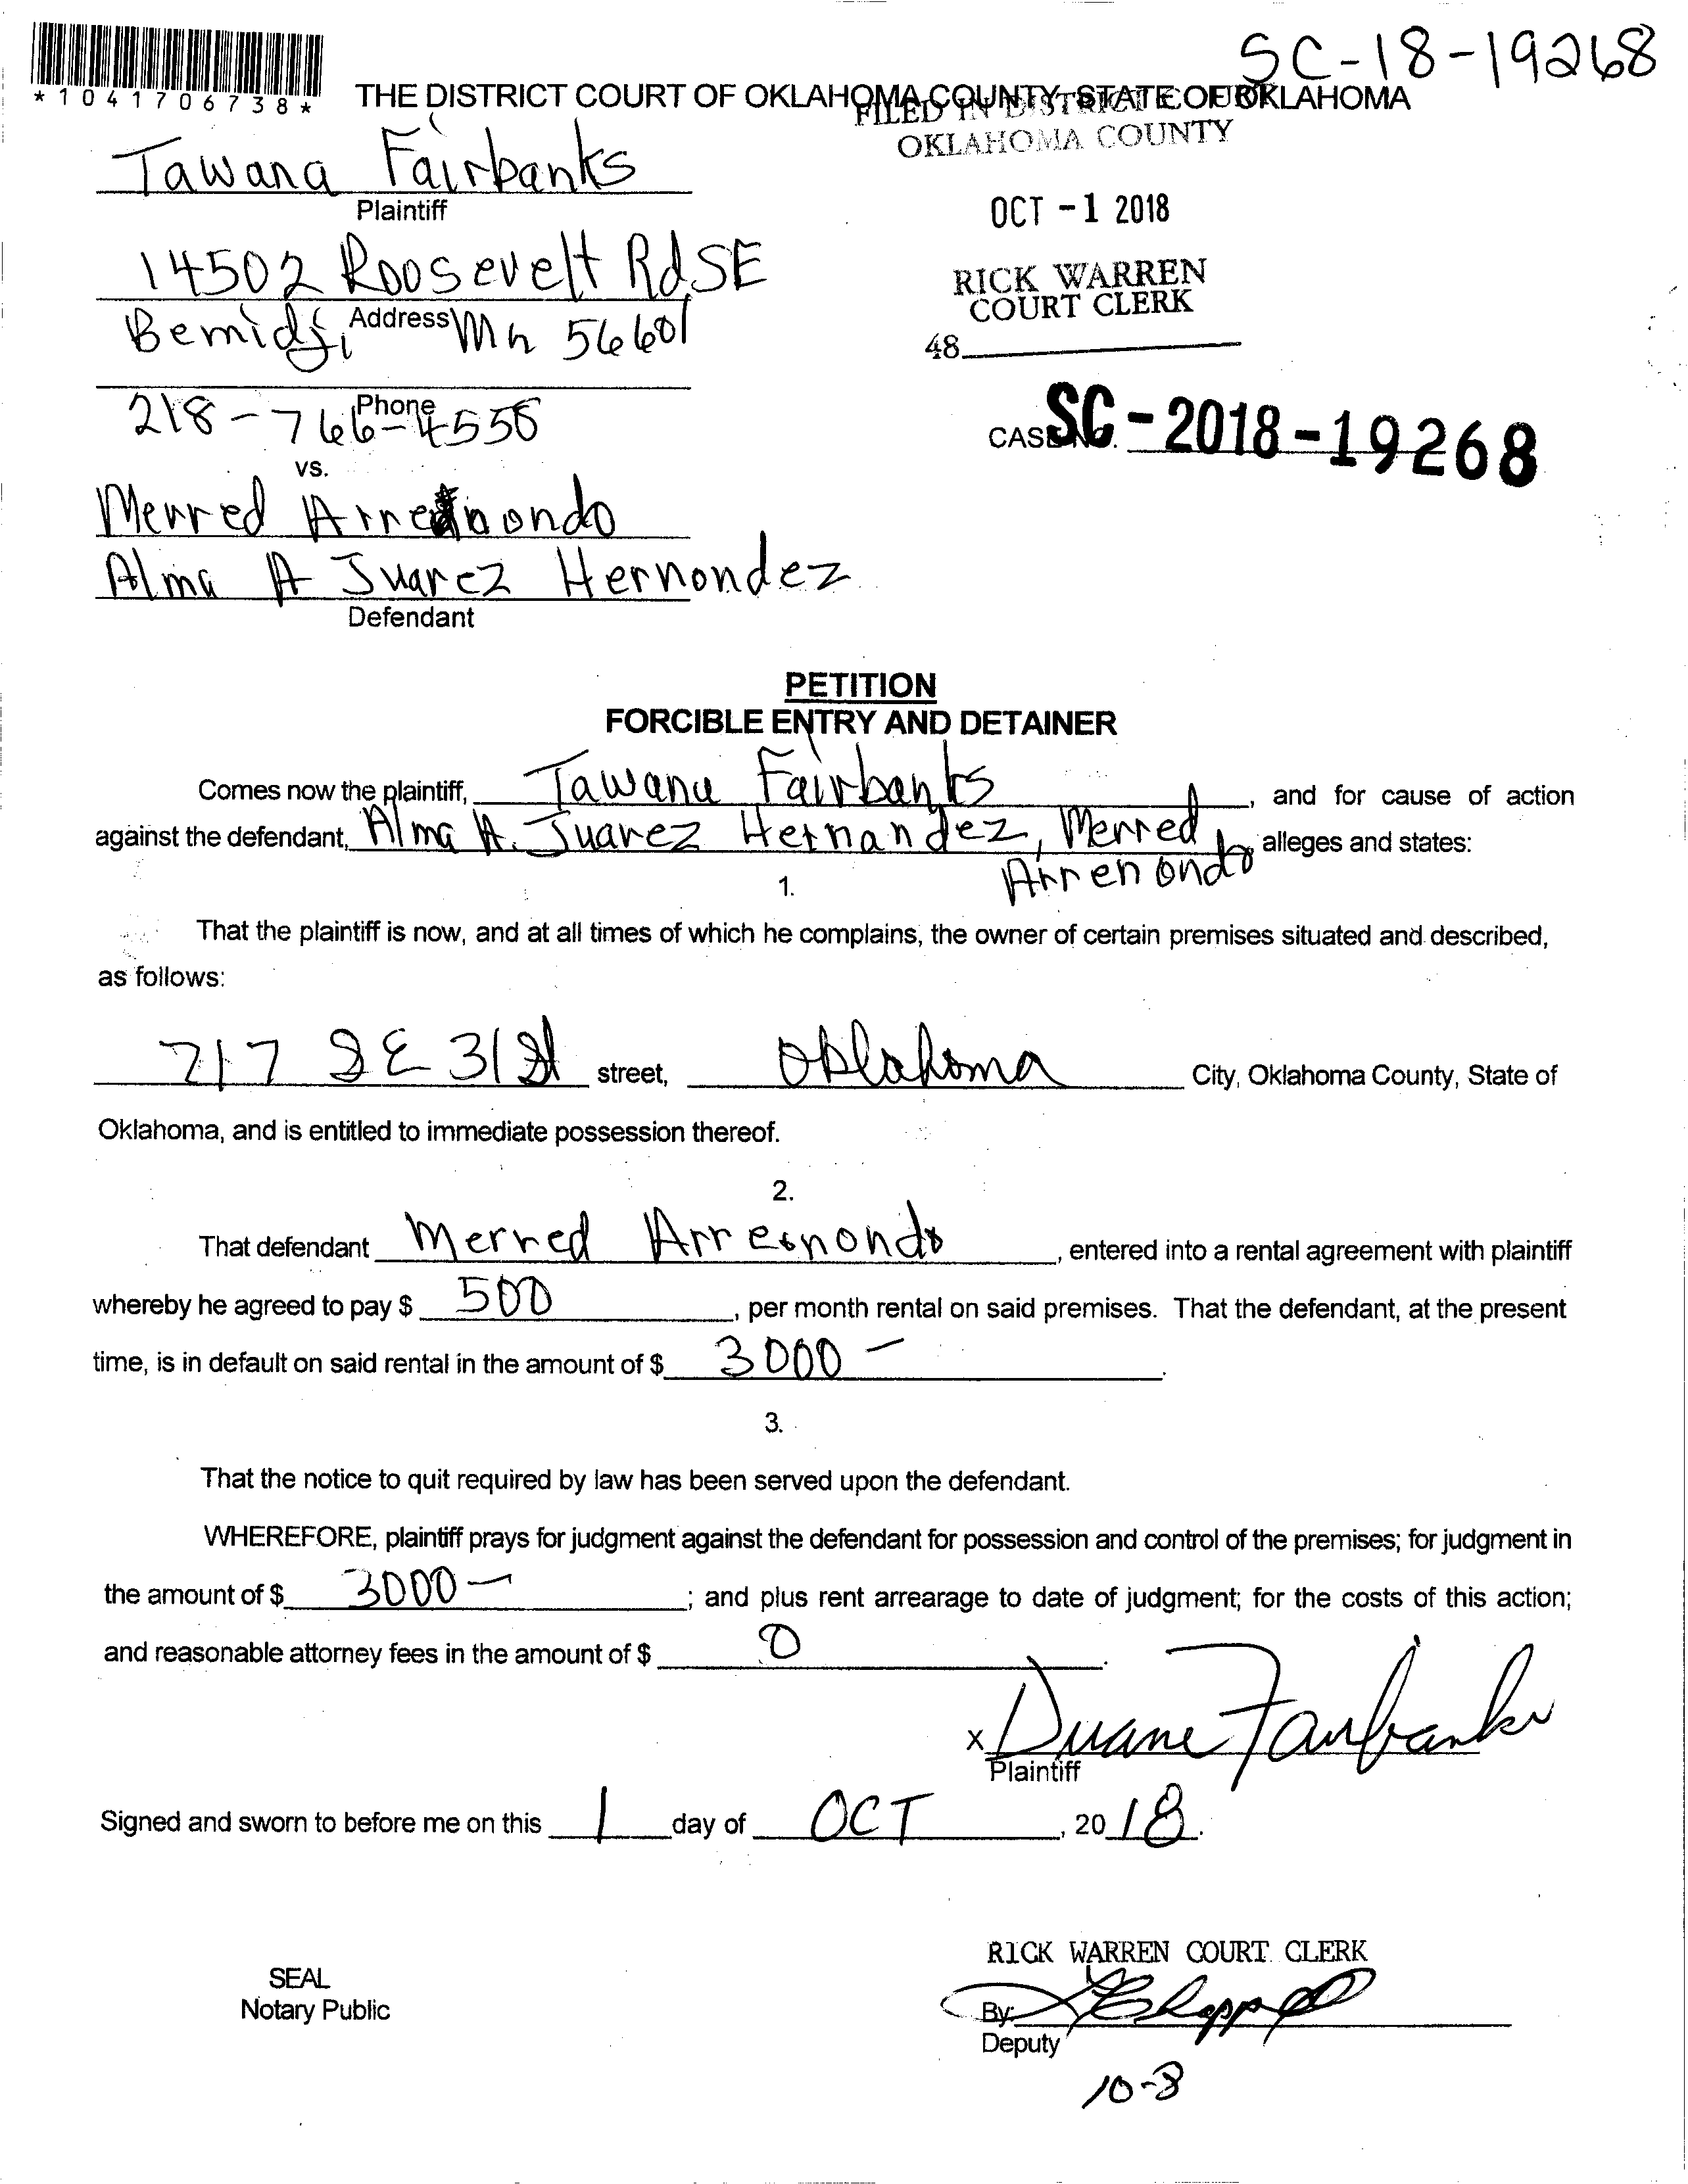 SC-18-19268
*1041706738*
THE DISTRICT COURT OF OKLAHOMA COUNTY, STATE OF OKLAHOMA
FILED IN DISTRICT COURT
OKLAHOMA COUNTY
Tawana Fairbanks
Plaintiff
OCT -1 2018
14502 Roosevelt Rd SE
RICK WARREN
COURT CLERK
Address
Bemidji, Mn 56601
48
Phone
218-766-4555
CASE NO. SC-2018-19268
vs.
Merred
Alma A Juarez Hernondez
Defendant
PETITION
FORCIBLE ENTRY AND DETAINER
Comes now the plaintiff, Tawana Fairbanks, and for cause of action
against the defendant, Alma A. Juarez Hernandez, Merred alleges and states:
Arrenondo
1.
That the plaintiff is now, and at all times of which he complains, the owner of certain premises situated and described,
as follows:
717 SE 31st street, Oklahoma City, Oklahoma County, State of
Oklahoma, and is entitled to immediate possession thereof.
2.
That defendant Merred, entered into a rental agreement with plaintiff
whereby he agreed to pay $ 500, per month rental on said premises. That the defendant, at the present
time, is in default on said rental in the amount of $ 3000 -.
3.
That the notice to quit required by law has been served upon the defendant.
WHEREFORE, plaintiff prays for judgment against the defendant for possession and control of the premises; for judgment in
the amount of $ 3000 -; and plus rent arrearage to date of judgment; for the costs of this action;
and reasonable attorney fees in the amount of $ 0.
x Duane Fairbanks
Plaintiff
Signed and sworn to before me on this 1 day of OCT, 20 18.
RICK WARREN COURT CLERK
SEAL
Notary Public
By:
Deputy
10-8